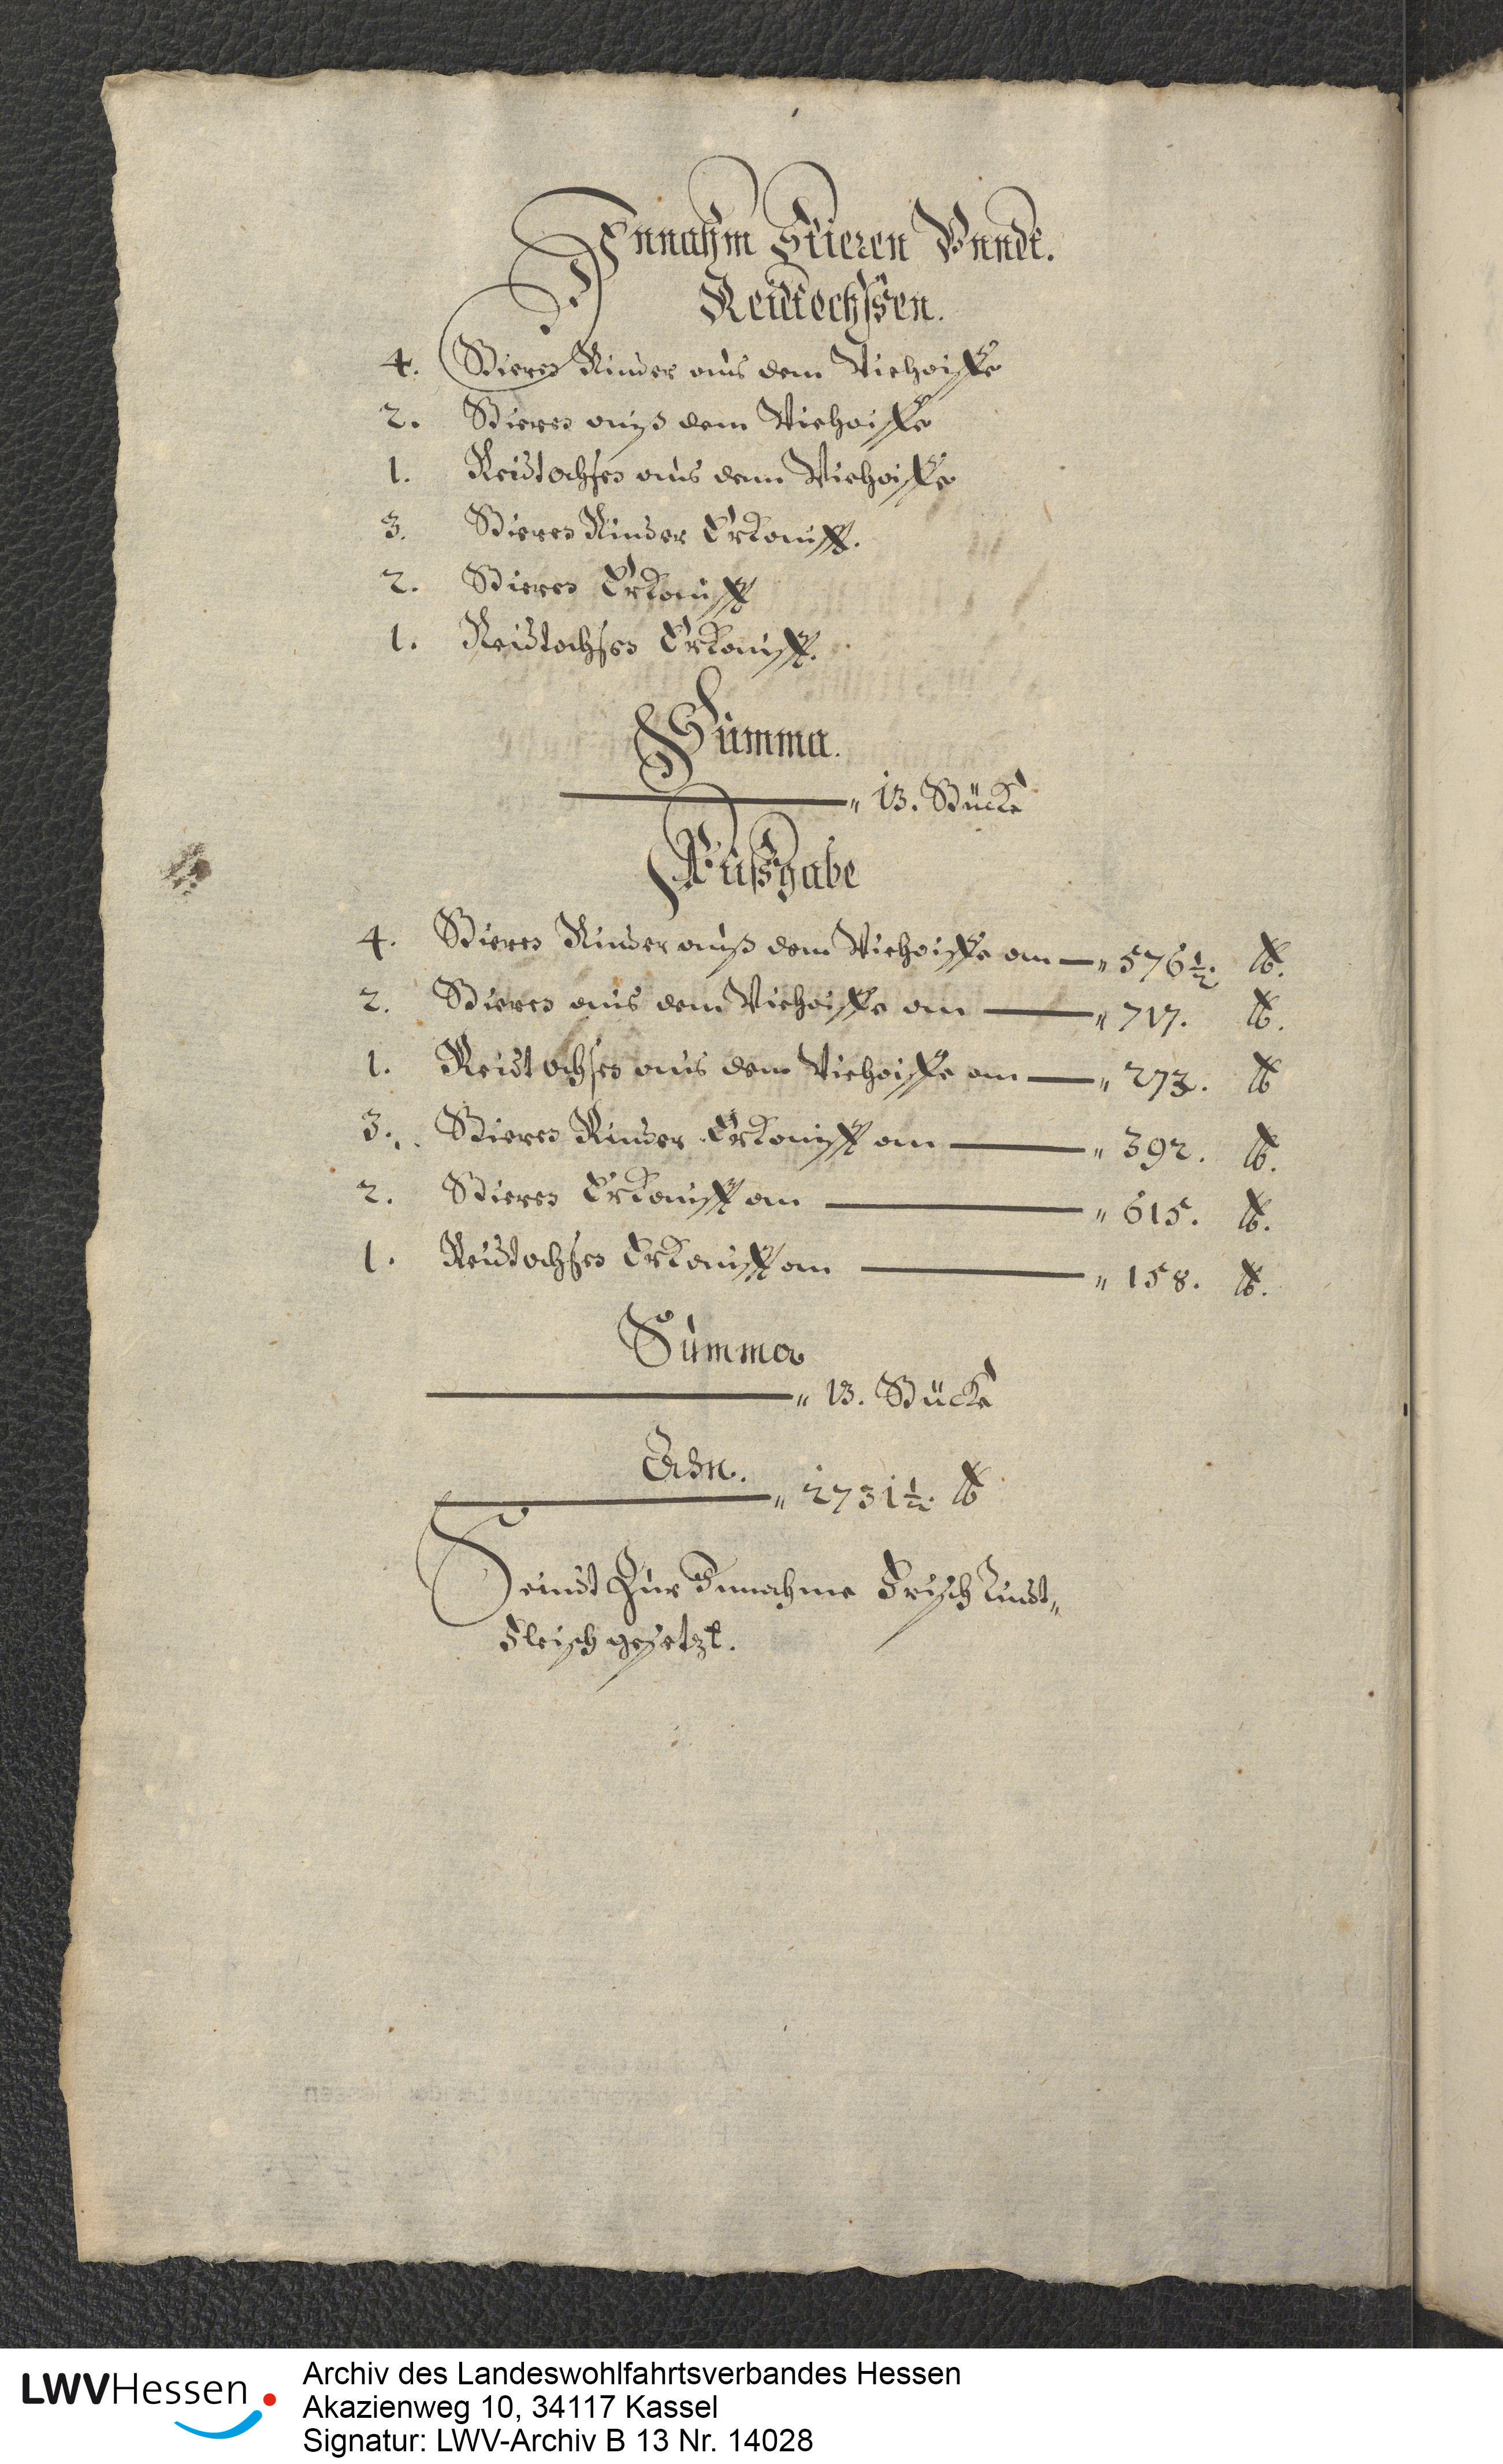 Innahm Stieren Vnndt.
Reittochßen.
4. Stieren Rinder aus dem Viehoiffe
2. Stieren auß dem Viehoiffe
1. Reidtochsen aus dem Viehoiffe
3. Stieren Rinder Erkaufft.
2. Stieren Erkaufft
1. Reidtochsen Erkaufft.
Summa.
" 13. Stücke
Außgabe
4. Stieren Rinder auß dem Viehoiffe am " 576 1/2. ℔.
2. Stieren aus dem Viehoiffe am " 717. ℔.
1. Reidtochsen aus dem Viehoiffe am " 273. ℔
3. Stieren Rinder Erkaufft am " 392. ℔.
2. Stieren Erkaufft am " 615. ℔.
1. Reidtochsen Erkaufft am " 158. ℔.
Summa
" 13. Stücke
" 2731 1/2. ℔
Seindt Zur Innahme Frisch Rindt"
Fleisch gesetzt.
LWVHessen
Archiv des Landeswohlfahrtsverbandes Hessen
Akazienweg 10, 34117 Kassel
Signatur: LWV-Archiv B 13 Nr. 14028